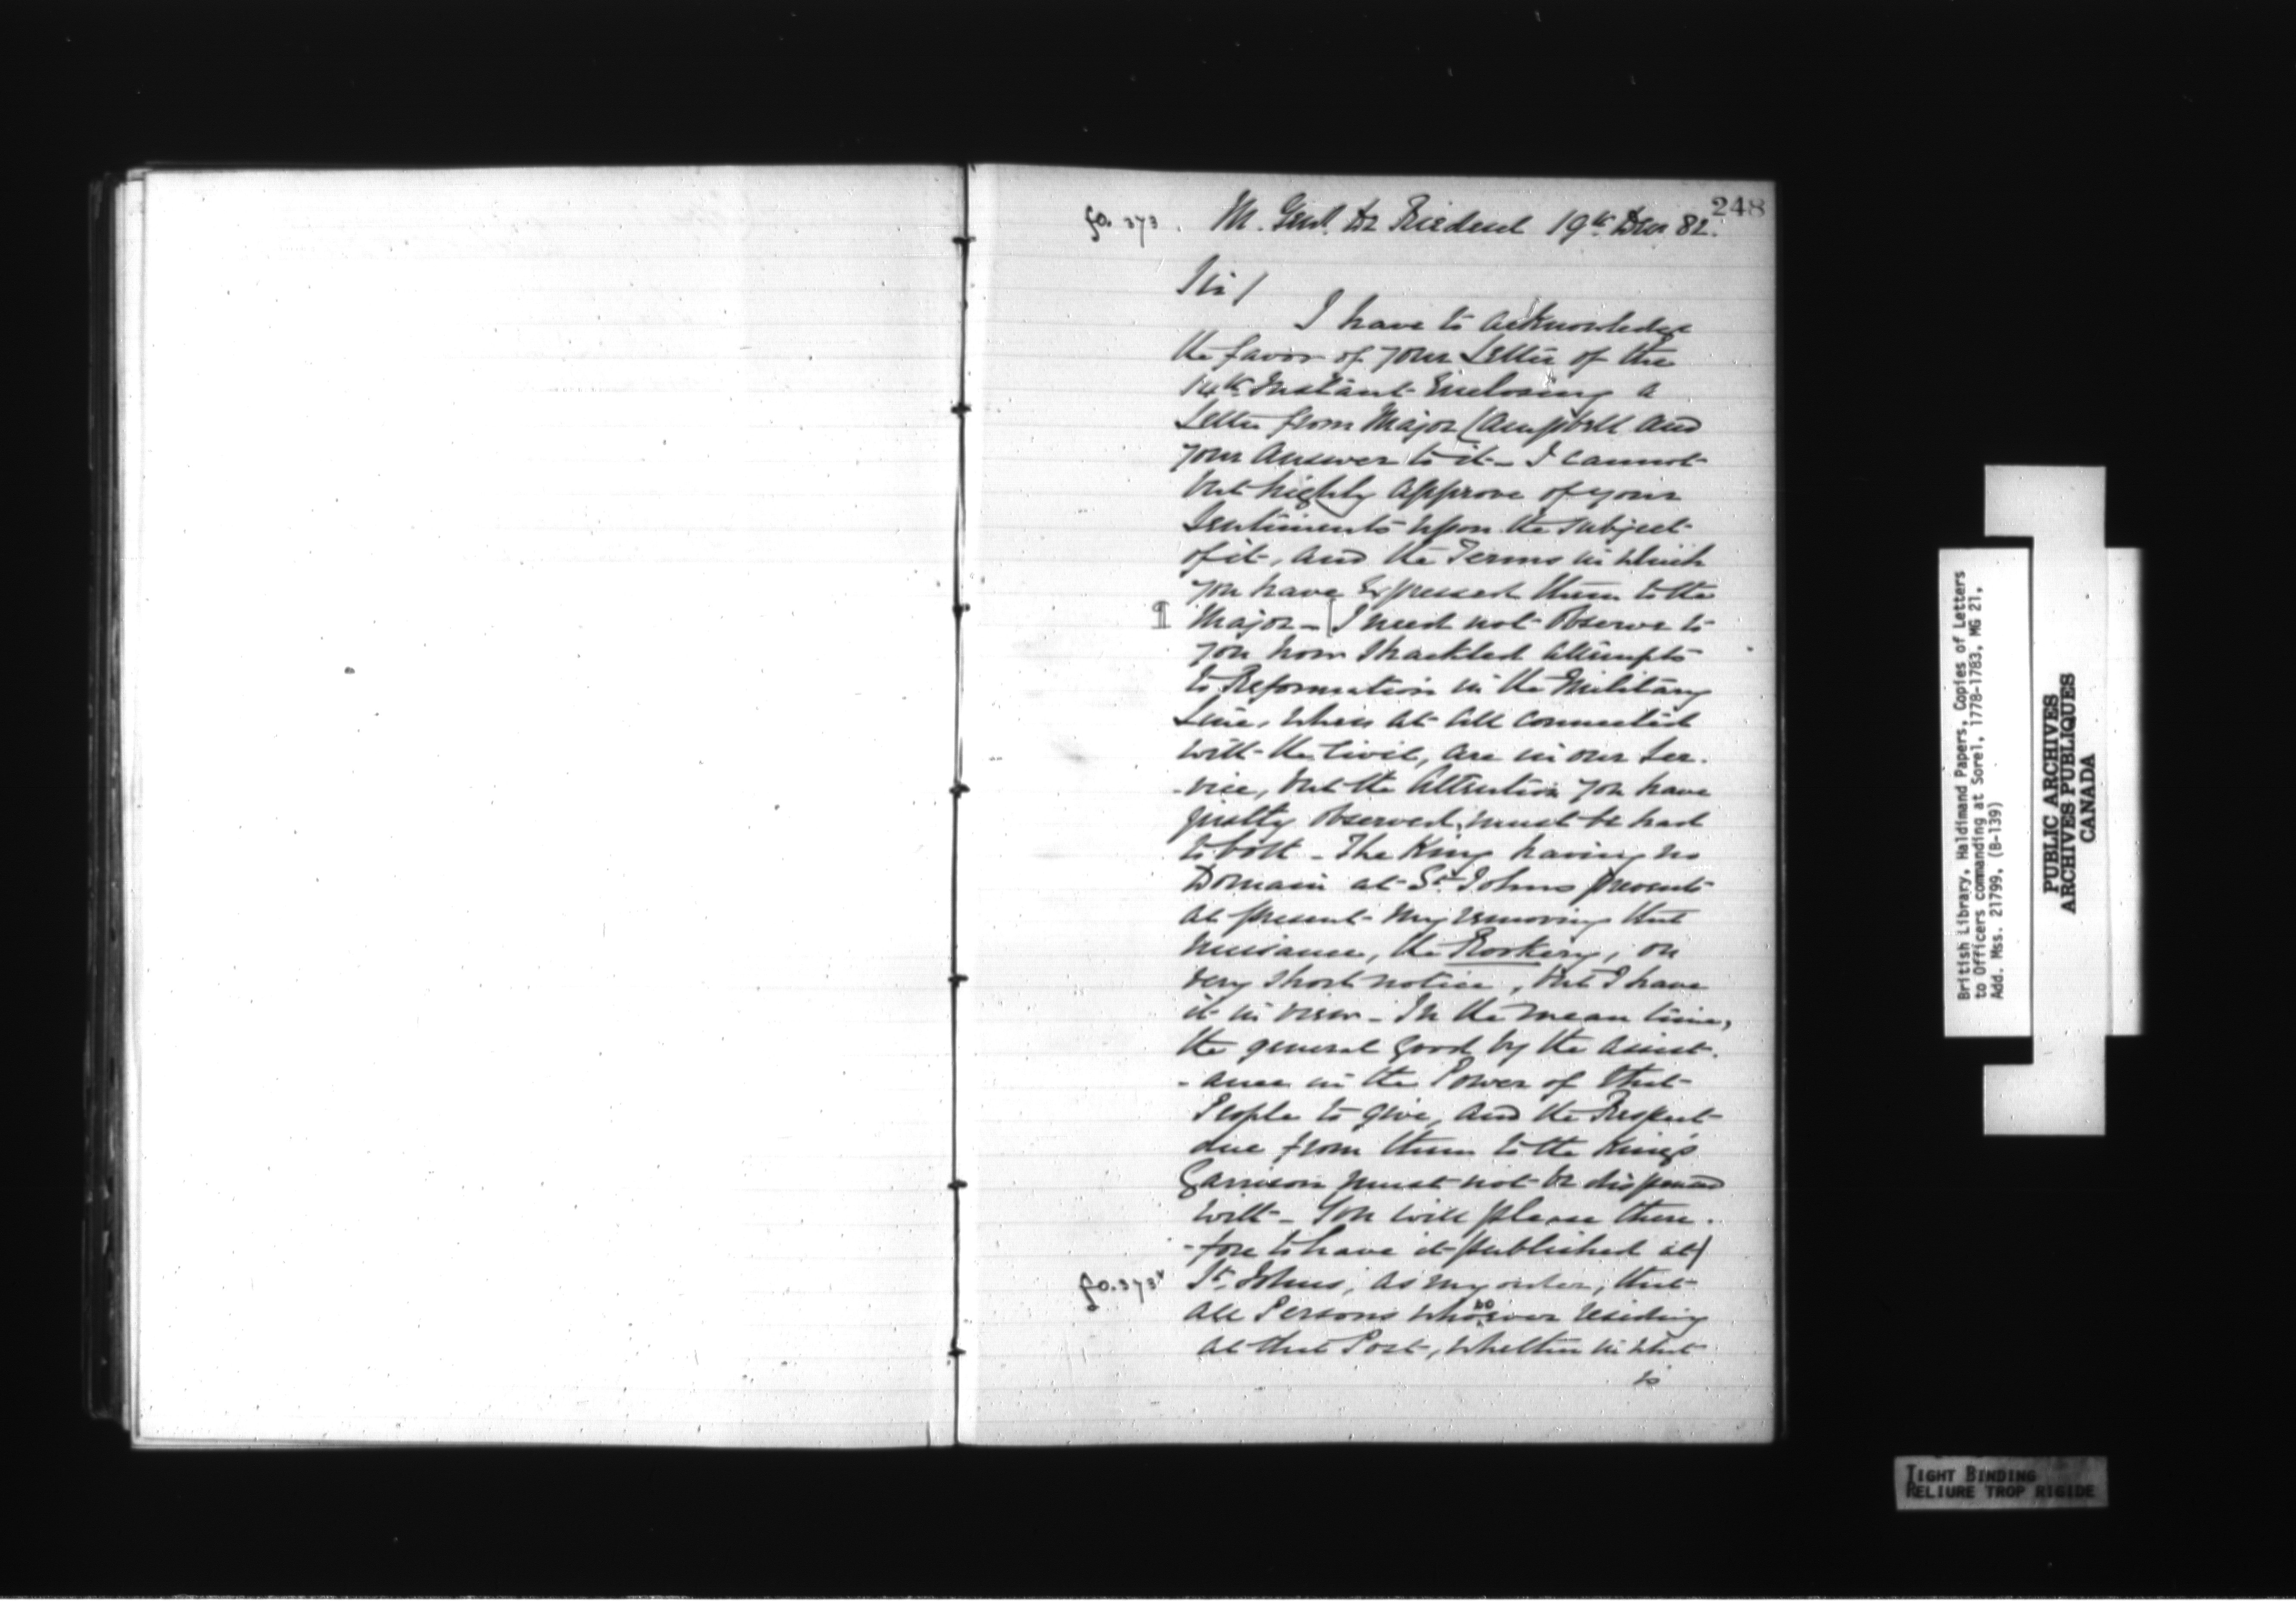 248
fo. 373. M. Genl. de Riedesel 19th Decr 82.
Sir/
I have to acknowledge
the favor of your Letter of the
14th Instant Enclosing a
Letter from Major Campbell and
your Answer to it - I cannot
but highly approve of your
Sentiments upon the subject
of it, and the Terms in which
you have Expressed them to the
¶ Major - [I need not observe to
you how Shackled attempts
to Reformation in the Military
Line, when at all connected
with the Civil, are in our Ser-
-vice, but the Attention you have
justly observed, must be had
to both - The King having no
Domain at St. Johns prevents
at present my removing that
nuisance, the Rookery, on
very short notice, but I have
it in view - In the mean time,
the general good by the assist-
-ance in the Power of that
People to give, and the Respect
due from them to the King's
Garrison must not be dispensed
with - You will please there-
-fore to have it published at/
fo. 373v St. Johns, as my order, that
all Persons whosoever residing
at that Post, whether in what
is
British Library, Haldimand Papers, Copies of Letters
to Officers commanding at Sorel, 1778-1783, MG 21,
Add. Mss. 21799, (B-139)
PUBLIC ARCHIVES
ARCHIVES PUBLIQUES
CANADA
TIGHT BINDING
RELIURE TROP RIGIDE